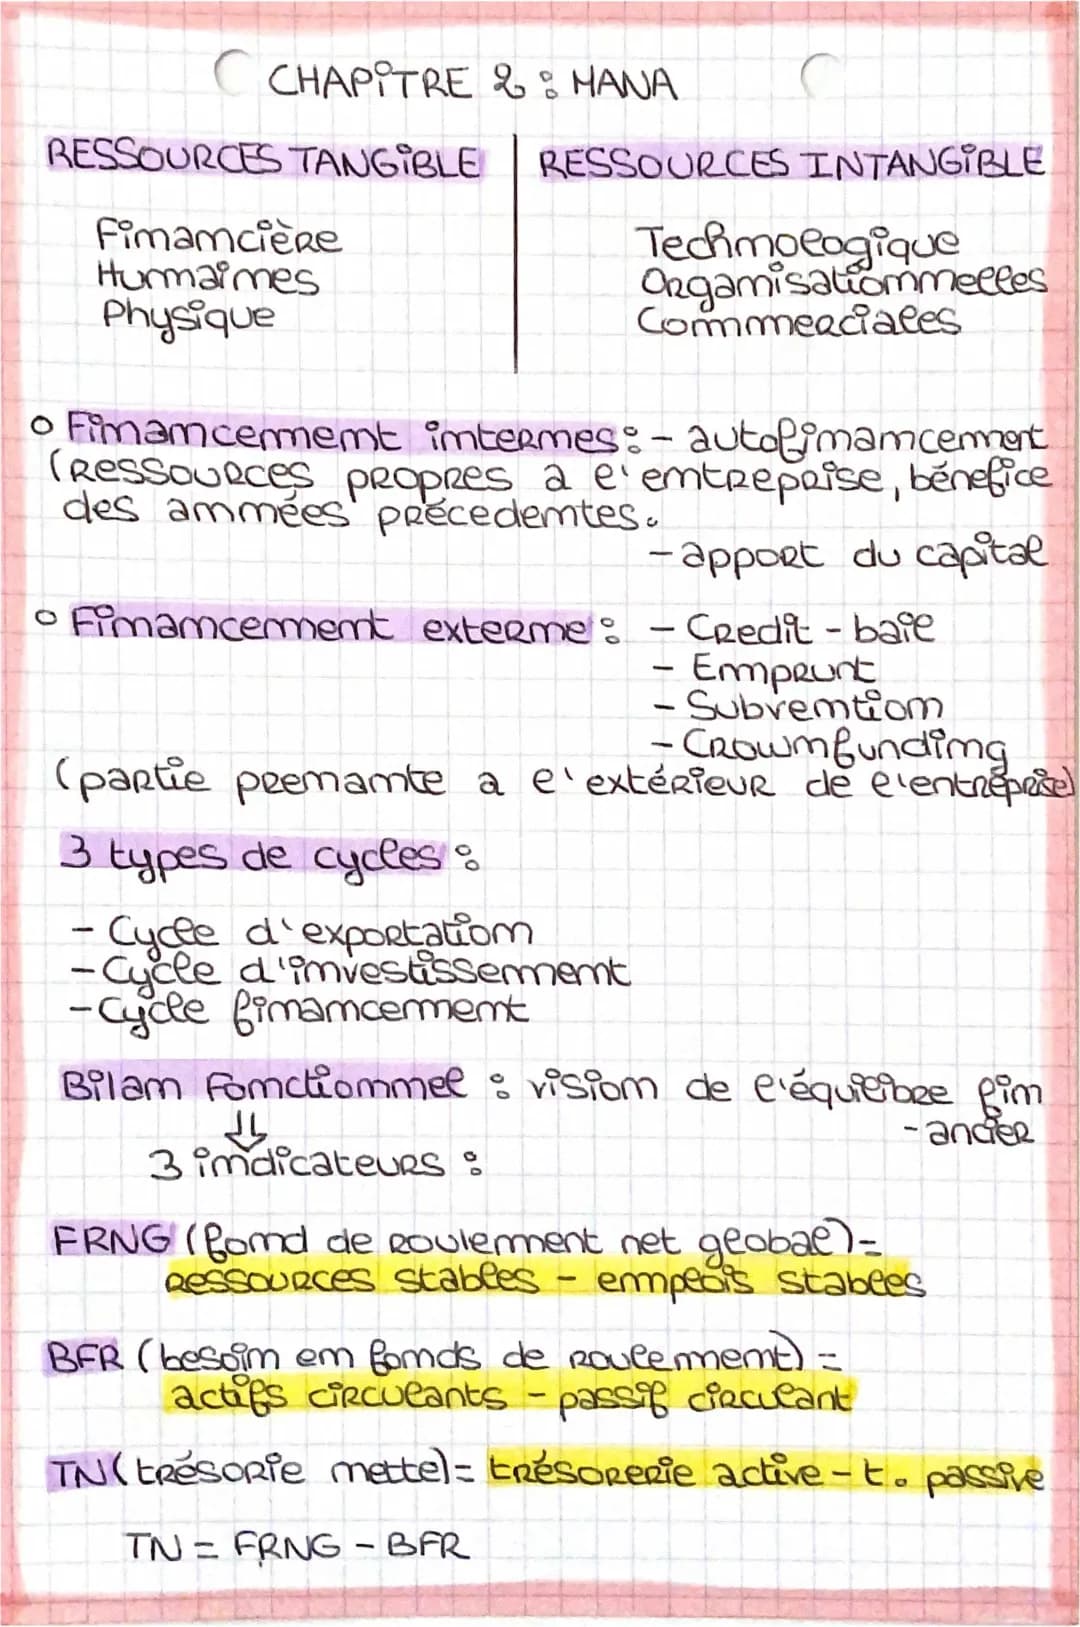 CHAPITRE 2 : MANA
RESSOURCES TANGIBLE
Financière
Humaines
Physique
RESSOURCES INTANGIBLE
Technologique
Organisationnelles
Commerciales
o Financement internes : - autofinancement
(Ressources propres a l'entreprise, bénefice
des années précedentes.
- apport du capital
o Financement externe : - Credit - bail
- Emprunt
- Subvention
- Crownfunding
(partie prenante a l'extérieur de l'entreprise)
3 types de cycles :
- Cycle d'exportation
- Cycle d'investissement
- Cycle financement
Bilan Fonctionnel : vision de l'équilibre fin
- ancier
⇓
3 indicateurs :
FRNG (fond de roulement net global) =
Ressources stables - emplois stables
BFR (besoin en fonds de roulement) =
actifs circulants - passif circulant
TN (trésorie nette) = trésorerie active - t. passive
TN = FRNG - BFR